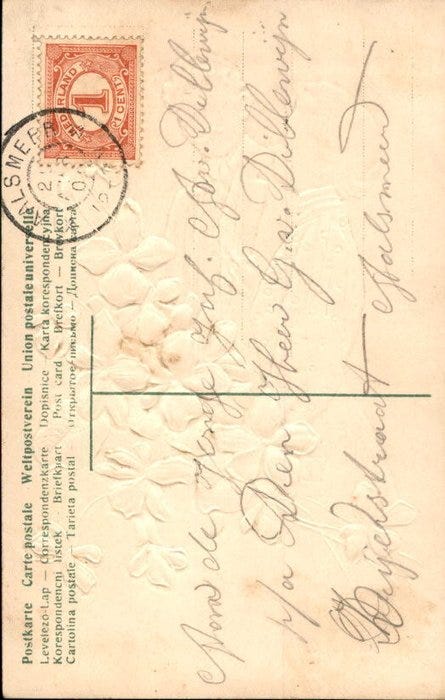 Postkarte Carte postale Weltpostverein Union postale universelle
Levelező-Lap — Correspondenzkarte Dopisnice — Karta korespondencyjna
Korespondencni listek — Briefkaart Post card — Brefkort — Brevkort
Cartolina postale — Tarieta postal Открытое письмо — Дописна карта
NEDERLAND
1
1 CENT
LSMEER
de Jonge Juf. v. Dillewijn
p/a Den Heer G. v. Dillewijn
Aalsmeer